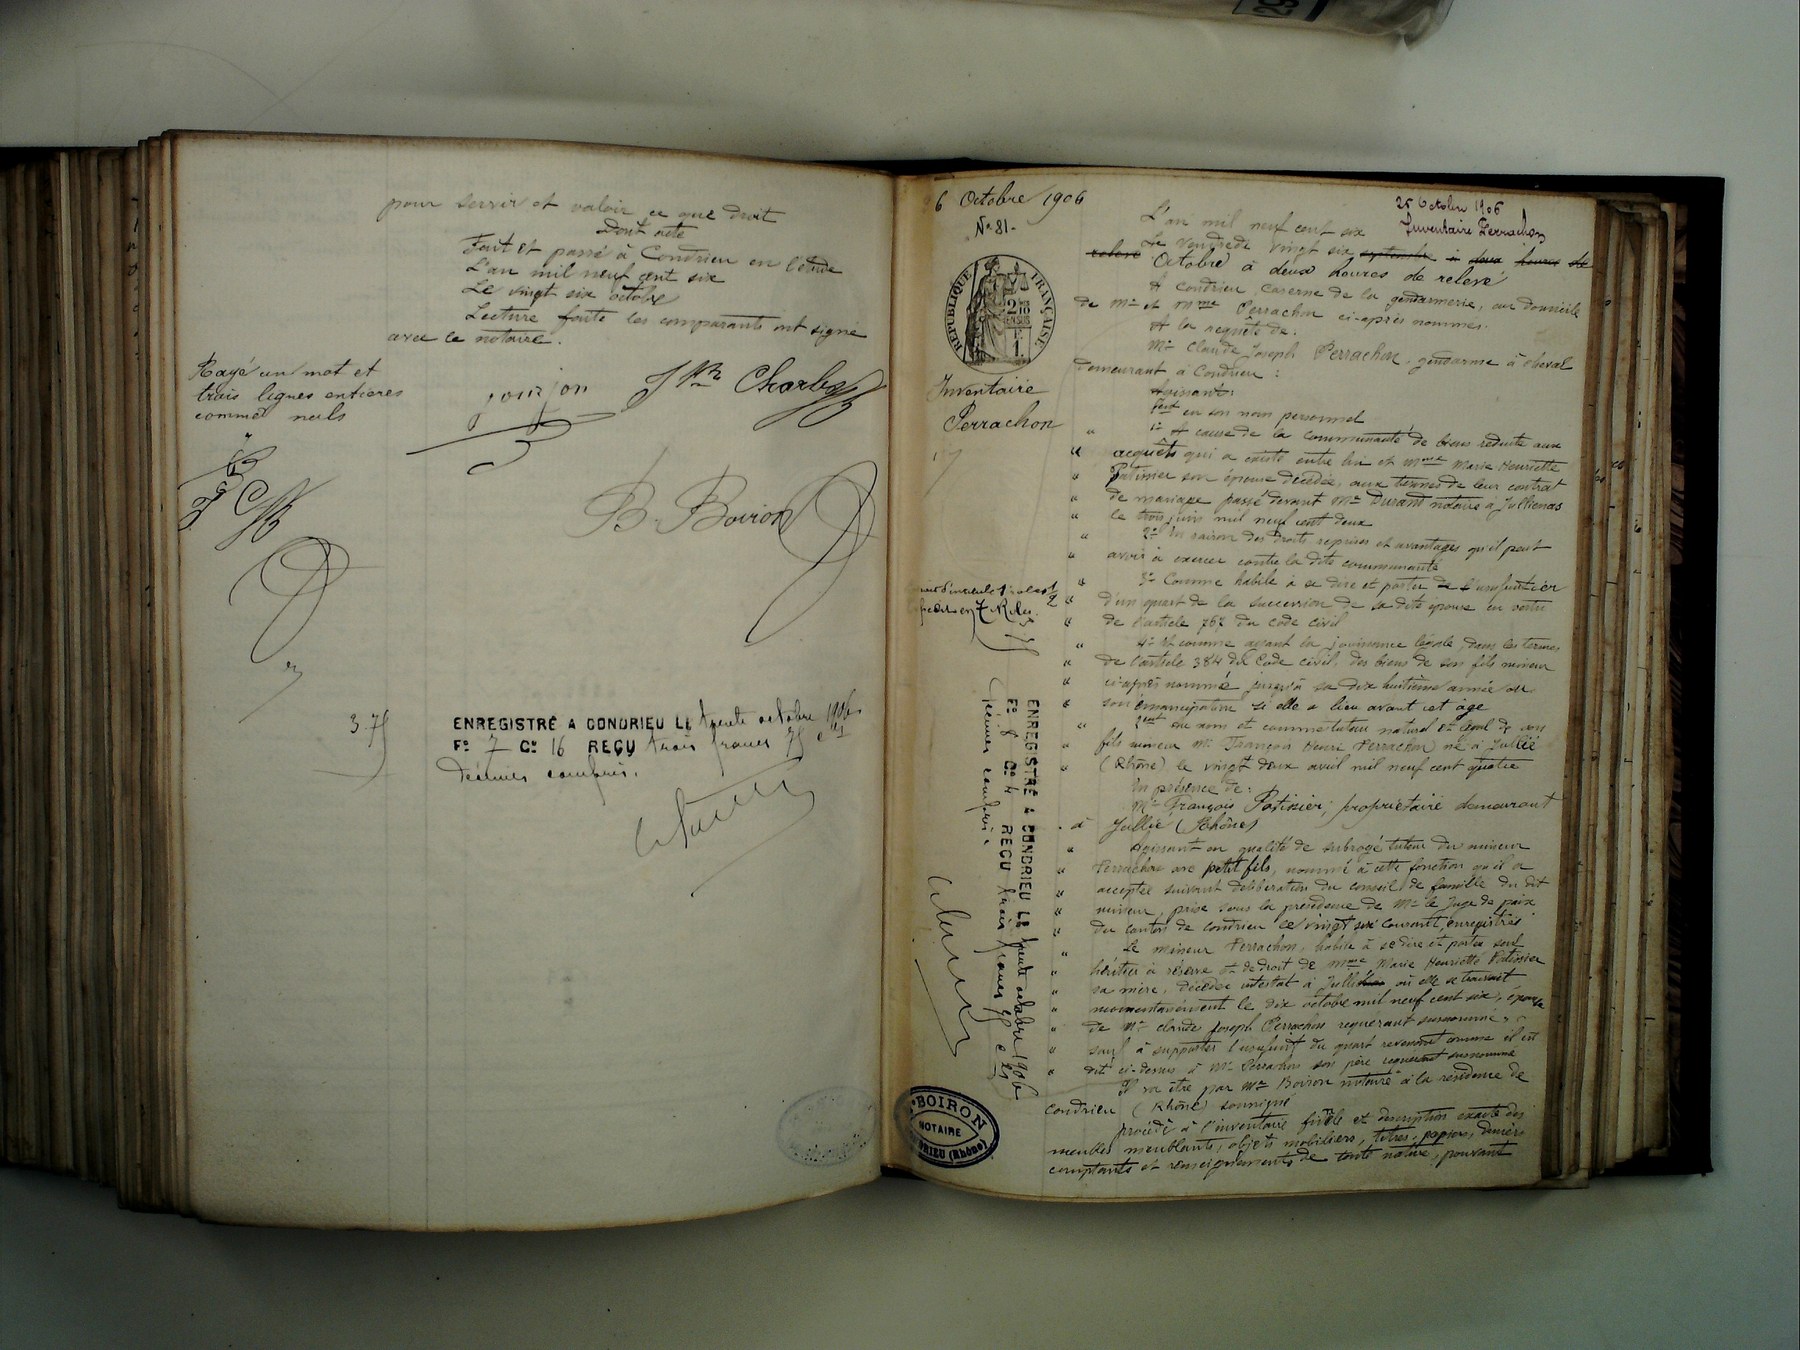 pour servir et valoir ce que droit
Dont acte
Fait et passé à Condrieu en l'étude
L'an mil neuf cent six
Le vingt six octobre
Lecture faite les comparants ont signé
avec le notaire.
Rayé un mot et
trois lignes entières
comme nuls
gonjon
B. Boiron
3.75
ENREGISTRÉ A CONDRIEU LE trente octobre 1906
F° 7 C° 16 REÇU trois francs 75 c es
décimes compris.
6 Octobre 1906
N° 81-
25 Octobre 1906
Inventaire Perrachon
RÉPUBLIQUE FRANÇAISE
Inventaire
Perrachon
L'an mil neuf cent six
Le vendredi vingt six septembre à deux heures de
relevé Octobre à deux heures de relevé
A Condrieu, caserne de la gendarmerie, au domicile
de Mr et Mme Perrachon ci-après nommés.
A la requête de:
Mr Claude Joseph Perrachon, gendarme à cheval
demeurant à Condrieu :
Agissant:
1ent en son nom personnel
1° A cause de la communauté de biens réduite aux
acquêts qui a existé entre lui et Mme Marie Henriette
Patissier son épouse décédée, aux termes de leur contrat
de mariage passé devant Me Durand notaire à Julliénas
le trois juin mil neuf cent deux
2° En raison des droits reprises et avantages qu'il peut
avoir à exercer contre la dite communauté
3° Comme habile à se dire et porter usufruitier
d'un quart de la succession de sa dite épouse en vertu
de l'article 767 du code civil
4° Et comme ayant la jouissance légale, dans les termes
de l'article 384 du Code civil, des biens de son fils mineur
ci-après nommé jusqu'à sa dix huitième année ou
son émancipation si elle a lieu avant cet âge
2ent Au nom et comme tuteur naturel et légal de son
fils mineur Mr François Henri Perrachon né à Jullié
(Rhône) le vingt deux avril mil neuf cent quatre
En présence de:
Mr François Patissier, propriétaire demeurant
à Jullié (Rhône)
Agissant en qualité de subrogé tuteur du mineur
Perrachon son petit fils, nommé à cette fonction qu'il a
acceptée suivant délibération du conseil de famille du dit
mineur, prise sous la présidence de Mr le Juge de paix
du canton de Condrieu le vingt six courant, enregistrée
Le mineur Perrachon, habile à se dire et porter seul
héritier à réserve et de droit de Mme Marie Henriette Patissier
sa mère, décédée intestat à Jullié où elle se trouvait
momentanément le dix octobre mil neuf cent six, épouse
de Mr Claude Joseph Perrachon requérant susnommé,
sauf à supporter l'usufruit du quart revenant comme il est
dit ci-dessus à Mr Perrachon son père requérant susnommé
Il va être par Me Boiron notaire à la résidence de
Condrieu (Rhône) soussigné
procédé à l'inventaire fidèle et description exacte des
meubles meublants, objets mobiliers, titres, papiers, deniers
comptants et renseignements de toute nature, pouvant
ENREGISTRÉ A CONDRIEU LE trente octobre 1906
F° 8 C° 4 REÇU trois francs 75 c es
décimes compris.
BOIRON
NOTAIRE
CONDRIEU (Rhône)